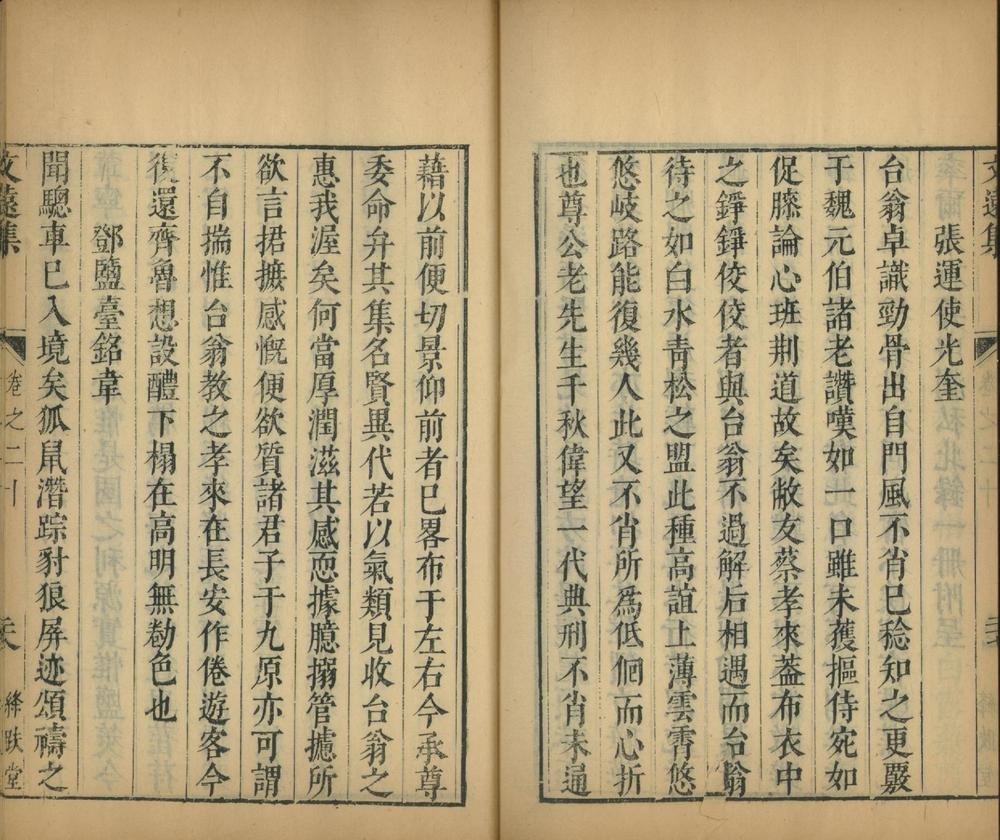 張運使光奎
台翁卓識勁骨出自門風不肖已稔知之更覈
于魏元伯諸老讚嘆如一口雖未獲摳侍宛如
促膝論心班荆道故矣敝友蔡孝來葢布衣中
之錚錚佼佼者與台翁不過解后相遇而台翁
待之如白水青松之盟此種高誼上薄雲霄悠
悠岐路能復幾人此又不肖所爲低徊而心折
也尊公老先生千秋偉望一代典刑不肖未通
藉以前便切景仰前者已畧布于左右今承尊
委命弁其集名賢異代若以氣類見收台翁之
惠我渥矣何當厚潤滋其感恧據臆搦管攄所
欲言捃摭感慨便欲質諸君子于九原亦可謂
不自揣惟台翁教之孝來在長安作倦遊客今
復還齊魯想設醴下榻在高明無勌色也
鄧鹽臺銘韋
聞驄車已入境矣狐鼠潛踪豺狼屏迹頌禱之
文遠集
卷之二十
絳趺堂